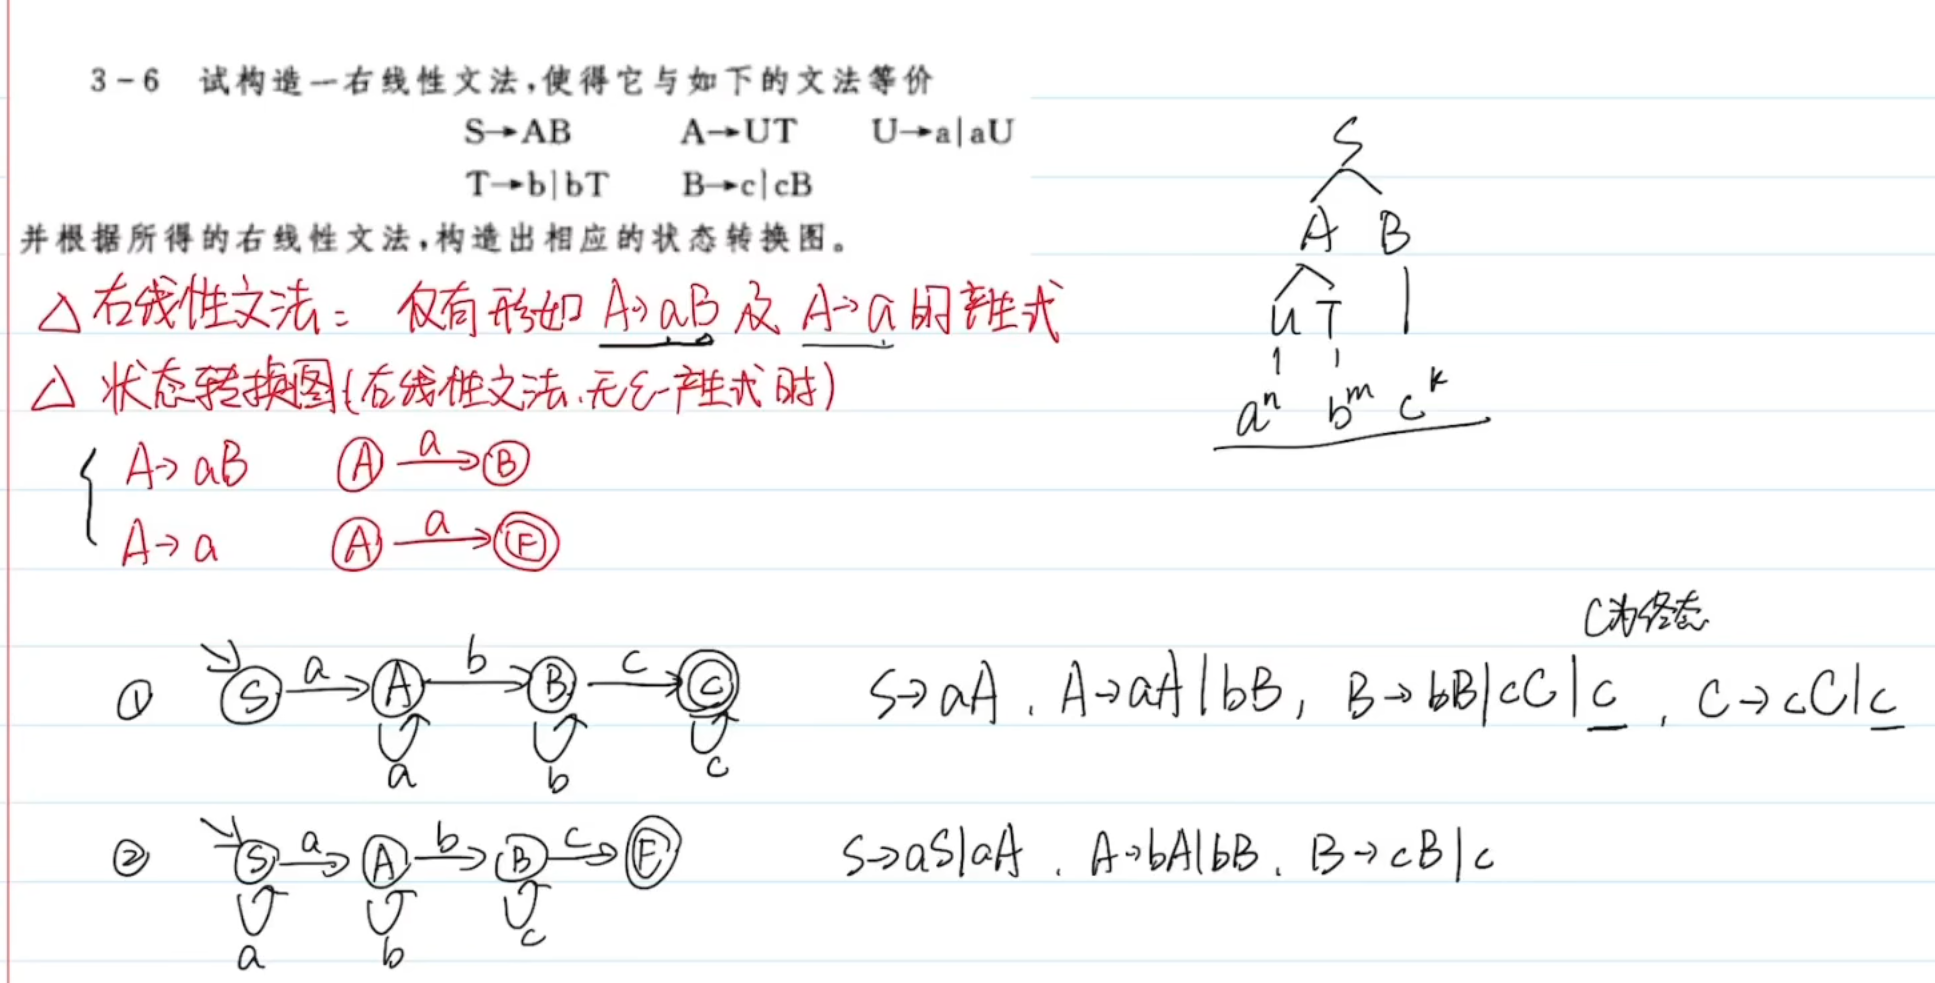 3-6 试构造一右线性文法,使得它与如下的文法等价
S→AB A→UT U→a|aU
T→b|bT B→c|cB
并根据所得的右线性文法,构造出相应的状态转换图。
△ 右线性文法: 仅有形如 A→aB 及 A→a 的产生式
△ 状态转换图(右线性文法.无ε-产生式时)
A→aB A a B
A→a A a F
S
A B
U T
aⁿ bᵐ cᵏ
C为终态
① S a A b B c C S→aA . A→aA|bB, B→bB|cC|c , C→cC|c
a b c
② S a A b B c F S→aS|aA . A→bA|bB. B→cB|c
a b c